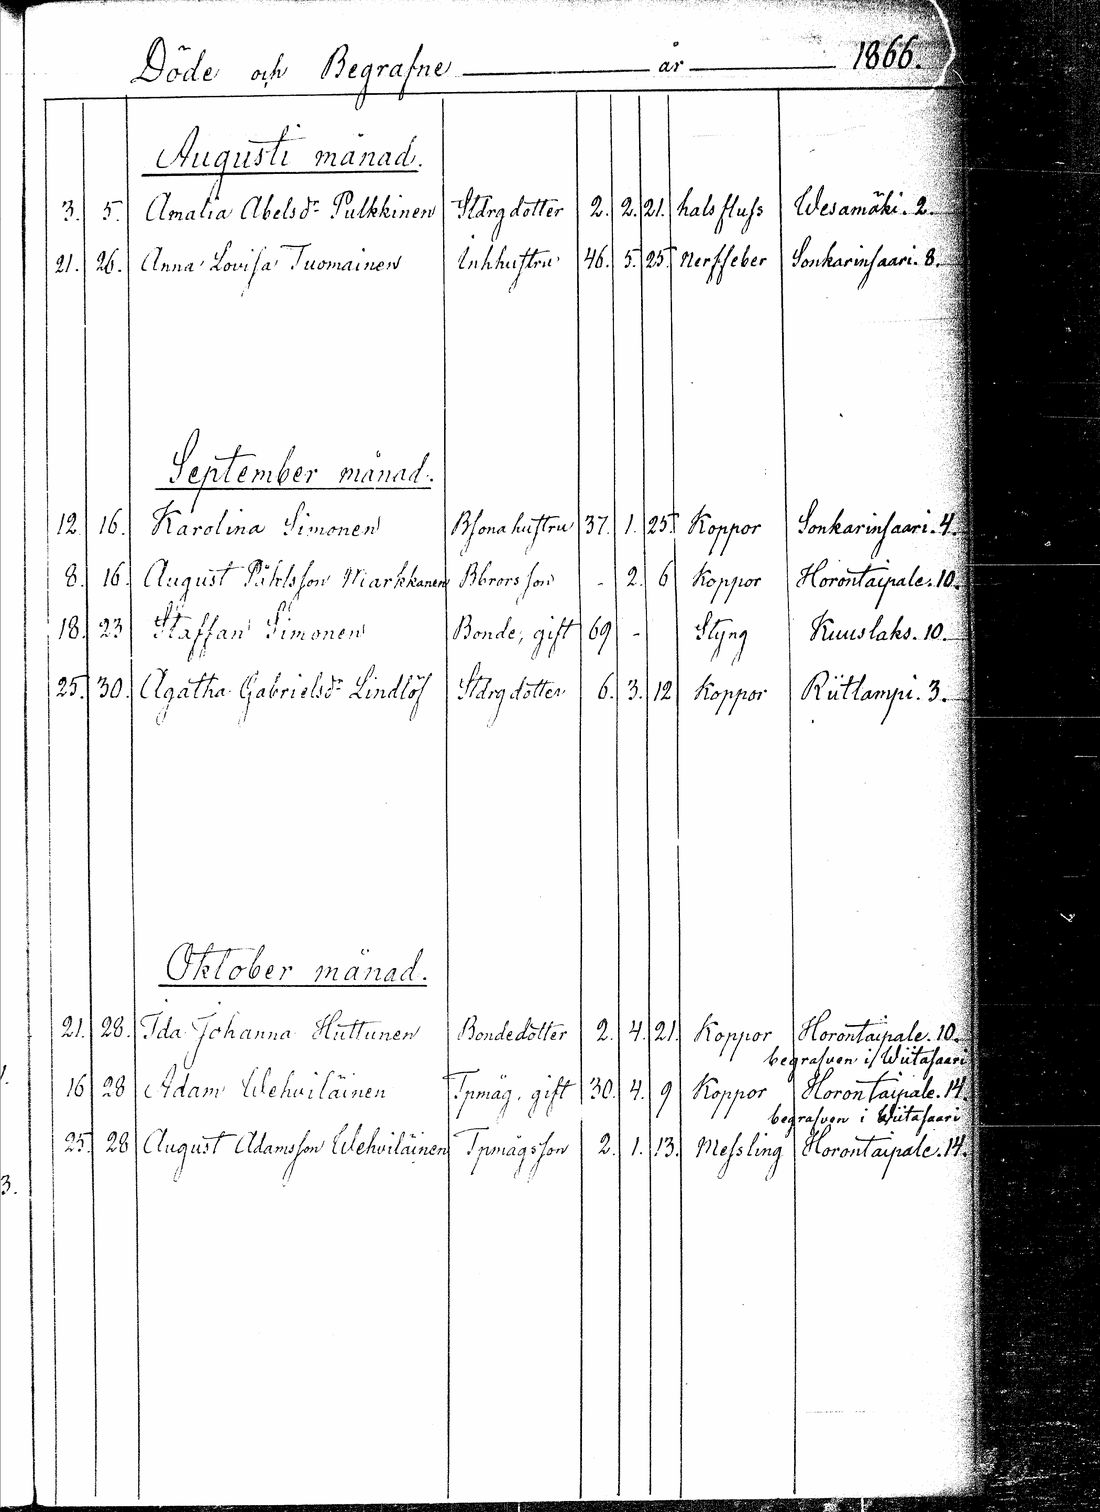 Döde och Begrafne år 1866.
Augusti månad.
3. 5. Amalia Abelsdr Pulkkinen Stdrg dotter 2. 2. 21. halsfluss Wesamäki. 2.
21. 26. Anna Lovisa Tuomainen Inhhustru 46. 5. 25. Nerffeber Sonkarinsaari. 8.
September månad.
12 16. Karolina Simonen Bsonahustru 37. 1. 25. Koppor Sonkarinsaari. 4.
8. 16. August Påhlsson Markkanen Bbrorsson - 2. 6 Koppor Horontaipale. 10.
18. 23 Staffan Simonen Bonde, gift 69 - Styng Kuuslaks. 10.
25. 30. Agatha Gabrielsdr Lindlöf Stdrg dotter 6. 3. 12 Koppor Riitlampi. 3.
Oktober månad.
21. 28. Ida Johanna Huttunen Bondedotter 2. 4. 21. Koppor Horontaipale. 10.
begrafven i Wiitasaari
16 28 Adam Wehviläinen Tpmåg, gift 30. 4. 9 Koppor Horontaipale. 14.
begrafven i Wiitasaari
25. 28 August Adamsson Wehviläinen Tpmågsson 2. 1. 13. Messling Horontaipale. 14.
3.